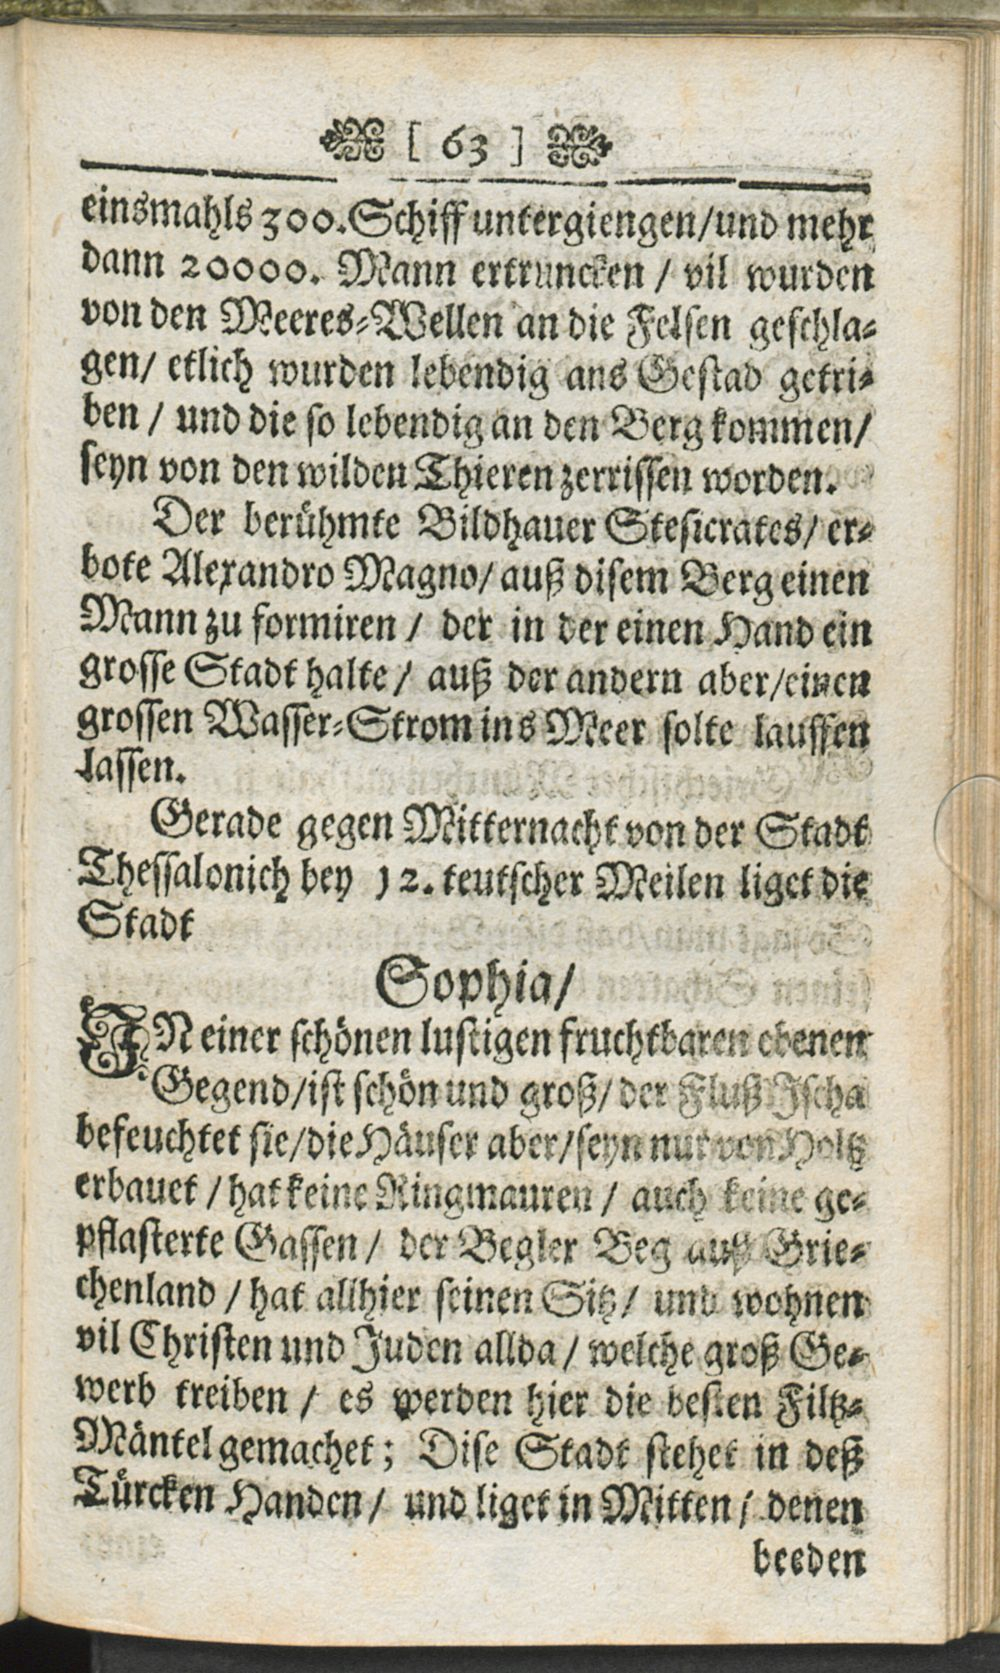 [ 63 ]
einsmahls 300. Schiff untergiengen/und mehr
dann 20000. Mann ertruncken / vil wurden
von den Meeres-Wellen an die Felsen geschla-
gen/ etlich wurden lebendig ans Gestad getri-
ben / und die so lebendig an den Berg kommen/
seyn von den wilden Thieren zerrissen worden.
Der berühmte Bildhauer Stesicrates/ er-
bote Alexandro Magno/ auß disem Berg einen
Mann zu formiren / der in der einen Hand ein
grosse Stadt halte / auß der andern aber/einen
grossen Wasser-Strom ins Meer solte lauffen
lassen.
Gerade gegen Mitternacht von der Stadt
Thessalonich bey 12. teutscher Meilen liget die
Stadt
Sophia/
IN einer schönen lustigen fruchtbaren ebenen
Gegend/ist schön und groß/ der Fluß Ischa
befeuchtet sie/die Häuser aber/seyn nur von Holtz
erbauet / hat keine Ringmauren / auch keine ge-
pflasterte Gassen / der Begler Beg auß Grie-
chenland / hat allhier seinen Sitz/ und wohnen
vil Christen und Juden allda / welche groß Ge-
werb treiben / es werden hier die besten Filtz-
Mäntel gemachet; Dise Stadt stehet in deß
Türcken Handen / und liget in Mitten / denen
beeden